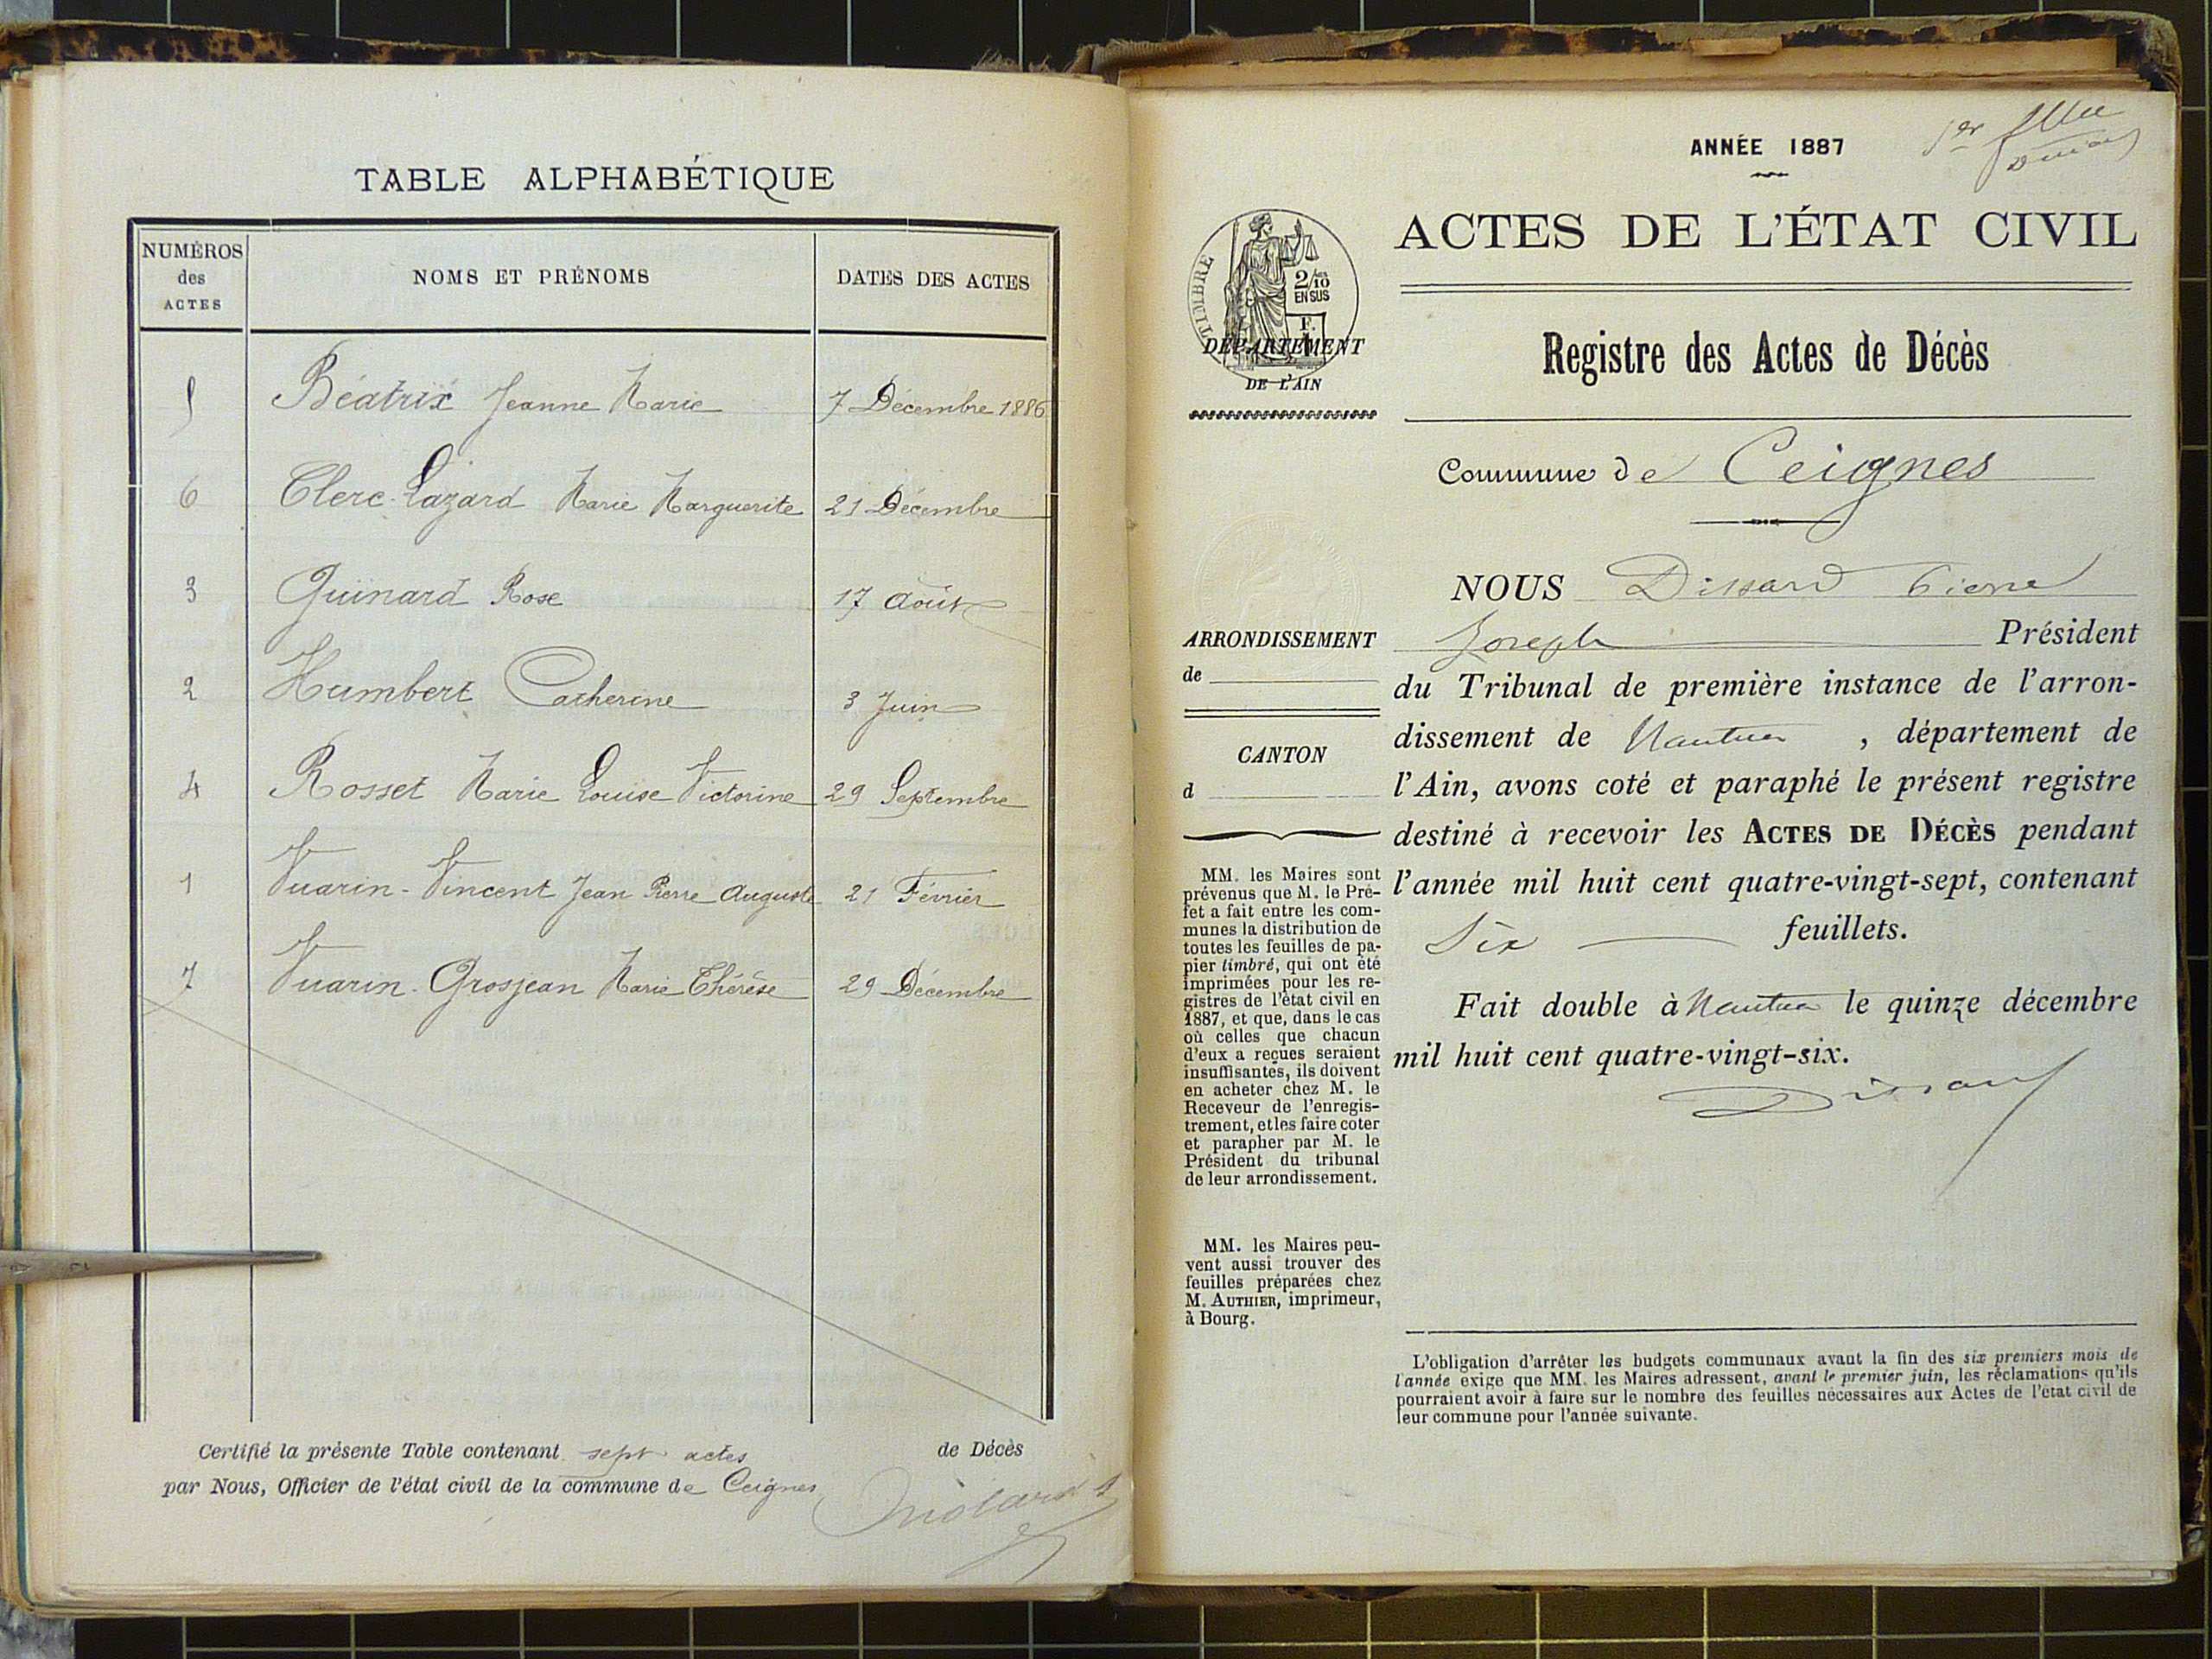 TABLE ALPHABÉTIQUE
NUMÉROS des ACTES
NOMS ET PRÉNOMS
DATES DES ACTES
5 Béatrix Jeanne Marie 7 Décembre 1886
6 Clerc-Lazard Marie Marguerite 21 Décembre
3 Guinard Rose 17 Août
2 Humbert Catherine 3 Juin
4 Rosset Marie Louise Victorine 29 Septembre
1 Vuarin-Vincent Jean Pierre Auguste 21 Février
7 Vuarin-Grosjean Marie Thérèse 29 Décembre
Certifié la présente Table contenant sept actes de Décès
par Nous, Officier de l'état civil de la commune de Ceignes
1er
ANNÉE 1887
TIMBRE
2/10 EN SUS
F.
DÉPARTEMENT
DE L'AIN
ACTES DE L'ÉTAT CIVIL
Registre des Actes de Décès
Commune de Ceignes
ARRONDISSEMENT
de
CANTON
d
MM. les Maires sont
prévenus que M. le Pré-
fet a fait entre les com-
munes la distribution de
toutes les feuilles de pa-
pier timbré, qui ont été
imprimées pour les re-
gistres de l'état civil en
1887, et que, dans le cas
où celles que chacun
d'eux a reçues seraient
insuffisantes, ils doivent
en acheter chez M. le
Receveur de l'enregis-
trement, et les faire coter
et parapher par M. le
Président du tribunal
de leur arrondissement.
MM. les Maires peu-
vent aussi trouver des
feuilles préparées chez
M. AUTHIER, imprimeur,
à Bourg.
NOUS Dissard Pierre
Joseph Président
du Tribunal de première instance de l'arron-
dissement de Nantua, département de
l'Ain, avons coté et paraphé le présent registre
destiné à recevoir les ACTES DE DÉCÈS pendant
l'année mil huit cent quatre-vingt-sept, contenant
Six feuillets.
Fait double à Nantua le quinze décembre
mil huit cent quatre-vingt-six.
Dissard
L'obligation d'arrêter les budgets communaux avant la fin des six premiers mois de
l'année exige que MM. les Maires adressent, avant le premier juin, les réclamations qu'ils
pourraient avoir à faire sur le nombre des feuilles nécessaires aux Actes de l'état civil de
leur commune pour l'année suivante.